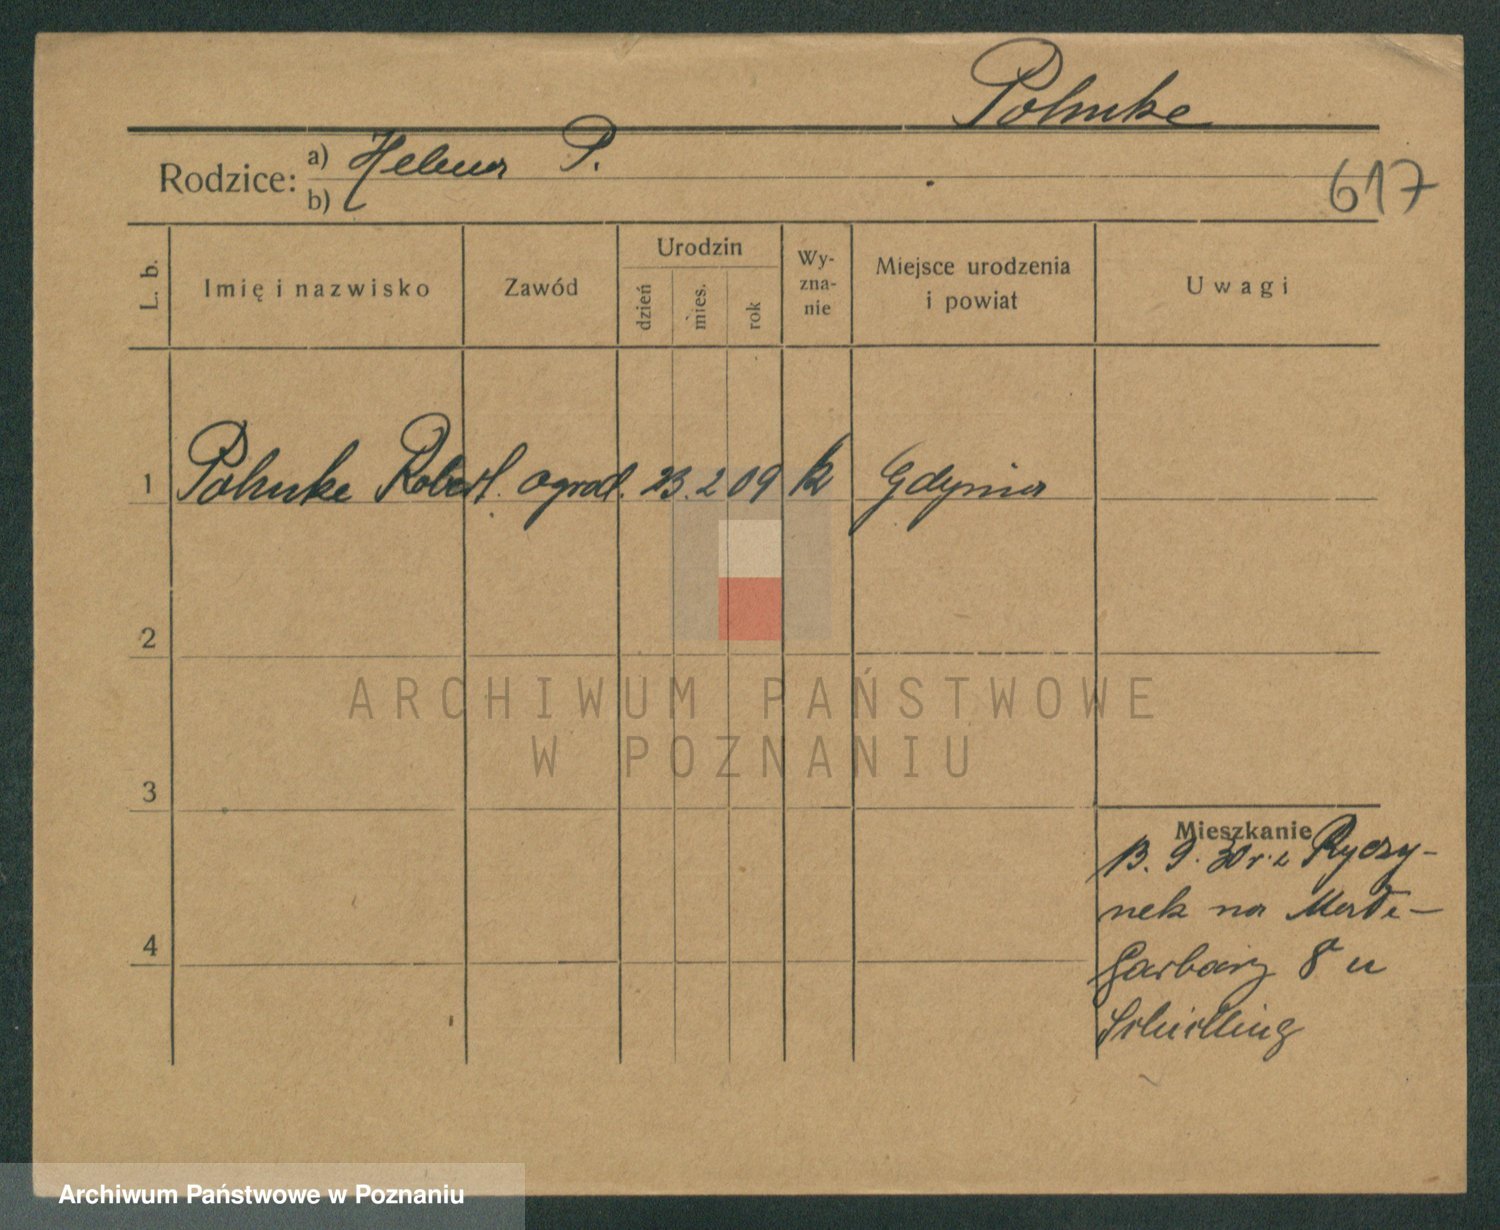 Pohnke
Rodzice: a) Helena P.
b)
617
L. b.
Imię i nazwisko
Zawód
Urodzin
dzień
mies.
rok
Wy-
zna-
nie
Miejsce urodzenia
i powiat
Uwagi
1 Pohnke Robert. ogrod. 23. 2 09 k Gdynia
2
3
4
Mieszkanie
13. 9. 30 r. z Ryczy-
nek na Małe-
Garbary 8 u
Schilling
ARCHIWUM PAŃSTWOWE
W POZNANIU
Archiwum Państwowe w Poznaniu